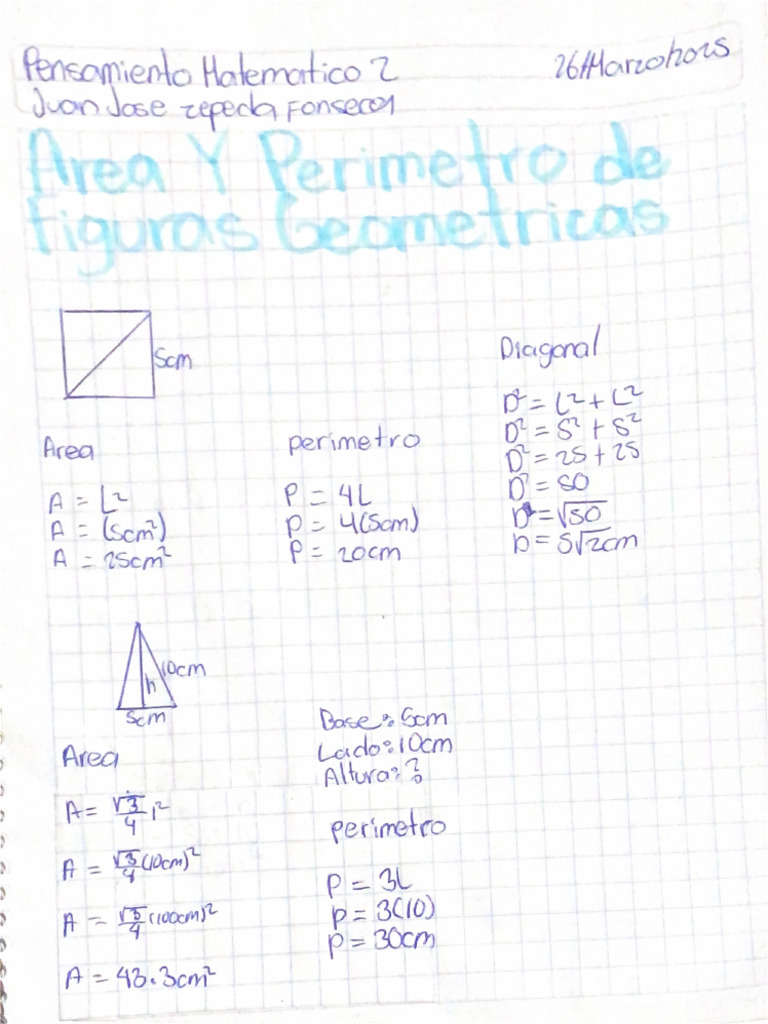 Pensamiento Matematico 2
26/Marzo/2025
Juan Jose Zepeda Fonseca
Area Y Perimetro de
figuras Geometricas
5cm
Diagonal
D² = L² + L²
D² = 5² + 5²
D² = 25 + 25
D² = 50
D = √50
D = 5√2cm
Area
A = L²
A = (5cm²)
A = 25cm²
perimetro
P = 4L
P = 4(5cm)
P = 20cm
10cm
h
5cm
Base: 5cm
Lado: 10cm
Altura: ?
Area
A = √3/4 l²
A = √3/4 (10cm)²
A = √3/4 (100cm)²
A = 43.3cm²
perimetro
P = 3L
P = 3(10)
P = 30cm